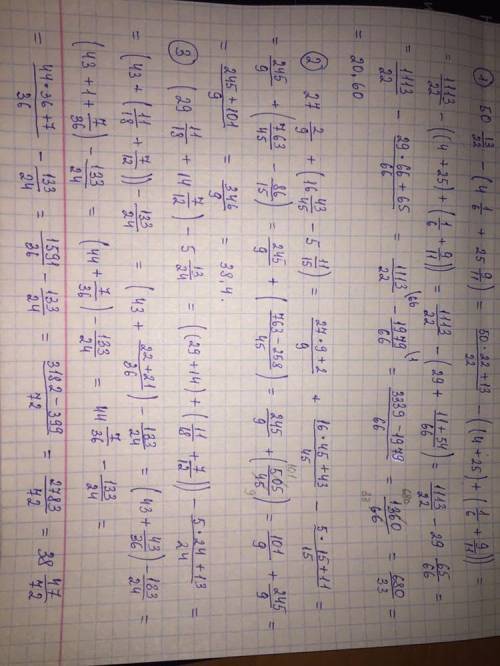 ① 50 13/22 − (4 1/6 + 25 9/11) = (50·22+13)/22 − ((4+25)+(1/6+9/11)) =
= 1113/22 − ((4+25)+(1/6+9/11)) = 1113/22 − (29 + (11+54)/66) = 1113/22 − 29 65/66 =
= 1113/22 − (29·66+65)/66 = 1113/22 − 1979/66 = (3339−1979)/66 = 1360/66 = 680/33 =
= 20,60
② 27 2/9 + (16 43/45 − 5 11/15) = (27·9+2)/9 + (16·45+43)/45 − (5·15+11)/15 =
= 245/9 + (763/45 − 86/15) = 245/9 + ((763−258)/45) = 245/9 + (505/45) = 101/9 + 245/9 =
= (245+101)/9 = 346/9 = 38,4.
③ (29 11/18 + 14 7/12) − 5 13/24 = ((29+14)+(11/18+7/12)) − (5·24+13)/24 =
= (43+(11/18+7/12)) − 133/24 = (43+(22+21)/36) − 133/24 = (43+43/36) − 133/24 =
(43+1+7/36) − 133/24 = (44+7/36) − 133/24 = 44 7/36 − 133/24 =
= (44·36+7)/36 − 133/24 = 1591/36 − 133/24 = (3182−399)/72 = 2783/72 = 38 47/72